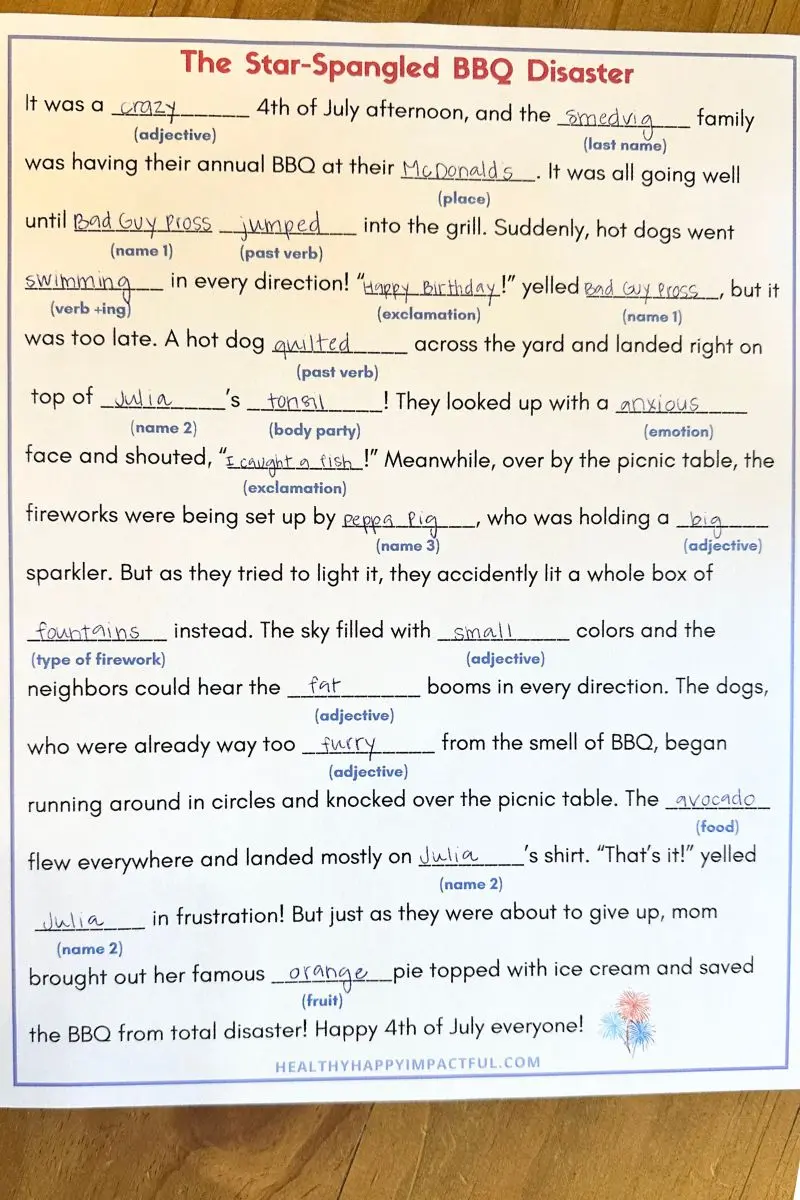 The Star-Spangled BBQ Disaster
It was a crazy 4th of July afternoon, and the smedvig family
(adjective) (last name)
was having their annual BBQ at their McDonalds. It was all going well
(place)
until Bad Guy Pross jumped into the grill. Suddenly, hot dogs went
(name 1) (past verb)
swimming in every direction! "Happy Birthday!" yelled Bad Guy Pross, but it
(verb +ing) (exclamation) (name 1)
was too late. A hot dog quilted across the yard and landed right on
(past verb)
top of Julia's tonsil! They looked up with a anxious
(name 2) (body party) (emotion)
face and shouted, "I caught a fish!" Meanwhile, over by the picnic table, the
(exclamation)
fireworks were being set up by peppa pig, who was holding a big
(name 3) (adjective)
sparkler. But as they tried to light it, they accidently lit a whole box of
fountains instead. The sky filled with small colors and the
(type of firework) (adjective)
neighbors could hear the fat booms in every direction. The dogs,
(adjective)
who were already way too furry from the smell of BBQ, began
(adjective)
running around in circles and knocked over the picnic table. The avocado
(food)
flew everywhere and landed mostly on Julia's shirt. "That's it!" yelled
(name 2)
Julia in frustration! But just as they were about to give up, mom
(name 2)
brought out her famous orange pie topped with ice cream and saved
(fruit)
the BBQ from total disaster! Happy 4th of July everyone!
HEALTHYHAPPYIMPACTFUL.COM